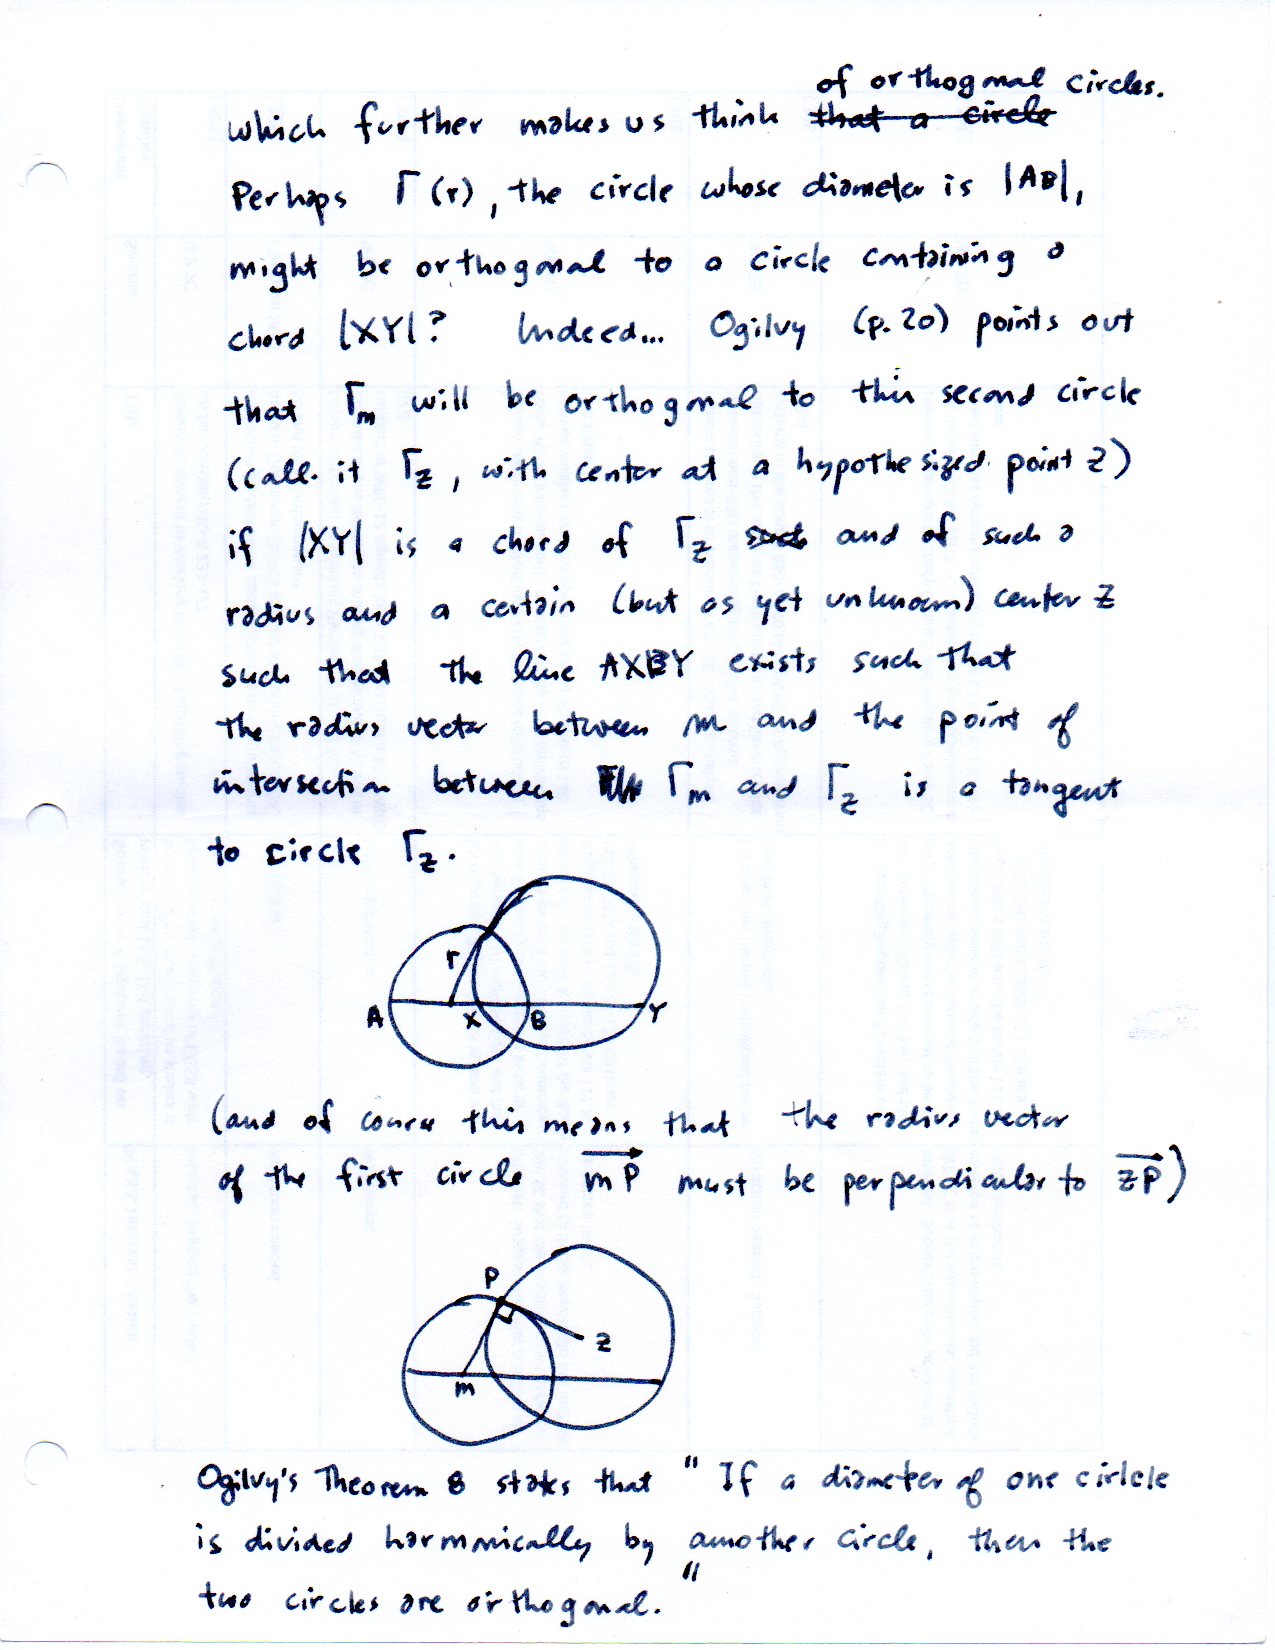 of orthogonal circles.
which further makes us think that a circle
Perhaps Γ(r), the circle whose diameter is |AB|,
might be orthogonal to a circle containing a
chord |XY|? Indeed... Ogilvy (p. 20) points out
that Γm will be orthogonal to this second circle
(call it Γz, with center at a hypothesized point Z)
if |XY| is a chord of Γz such and of such a
radius and a certain (but as yet unknown) center Z
such that the line AXBY exists such that
the radius vector between m and the point of
intersection between Γm and Γz is a tangent
to circle Γz.
r
A X B Y
(and of course this means that the radius vector
of the first circle mP must be perpendicular to ZP)
P
Z
m
Ogilvy's Theorem 8 states that "If a diameter of one cirlcle
is divided harmonically by another circle, then the
two circles are orthogonal."